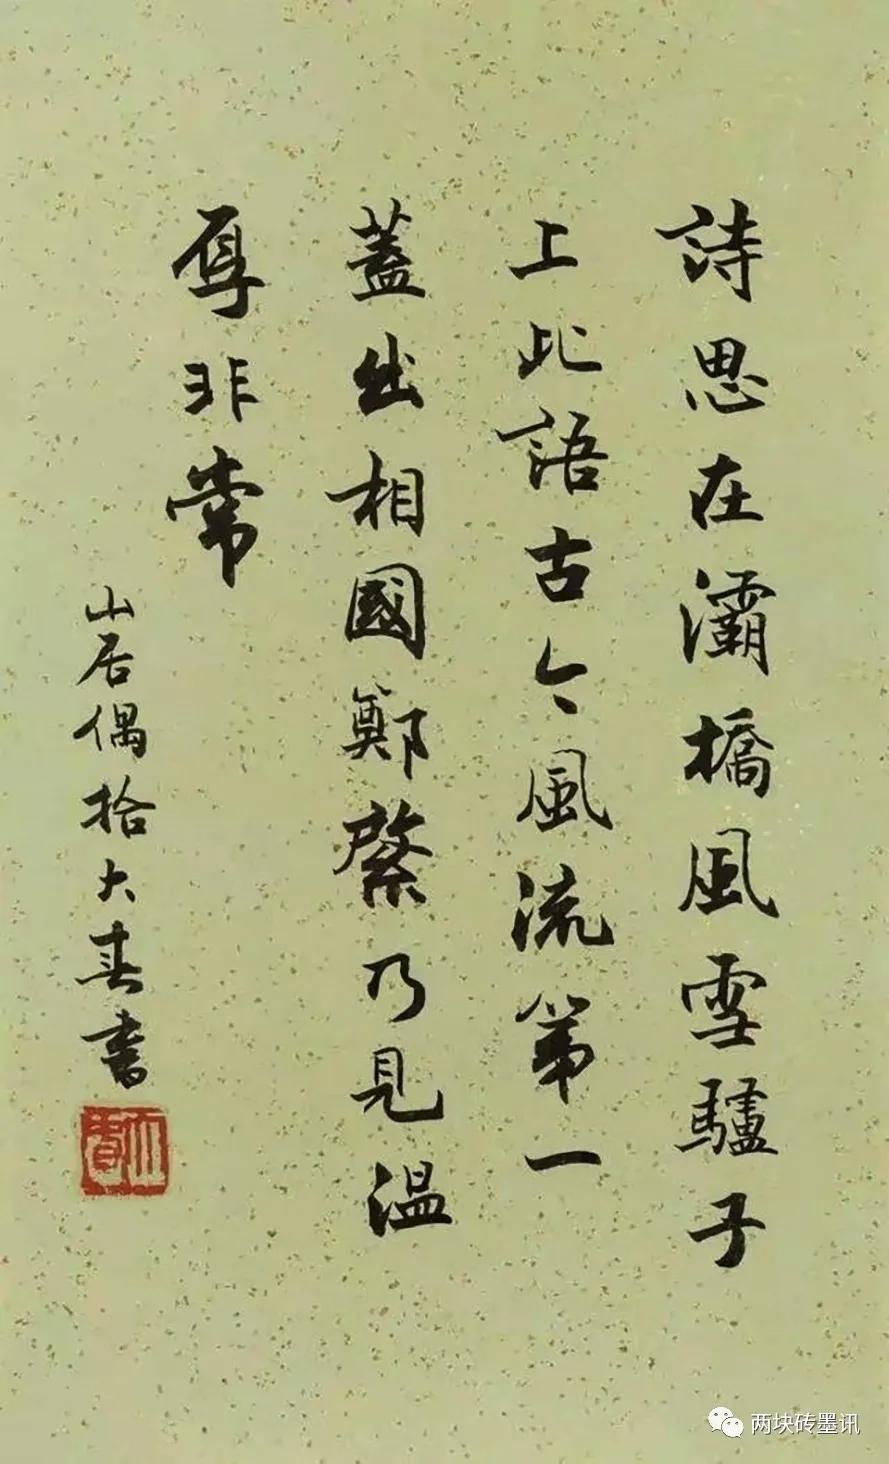 詩思在灞橋風雪驢子
上此語古今風流第一
蓋出相國鄭綮乃見溫
厚非常
山居偶拾大春書
大春
两块砖墨讯